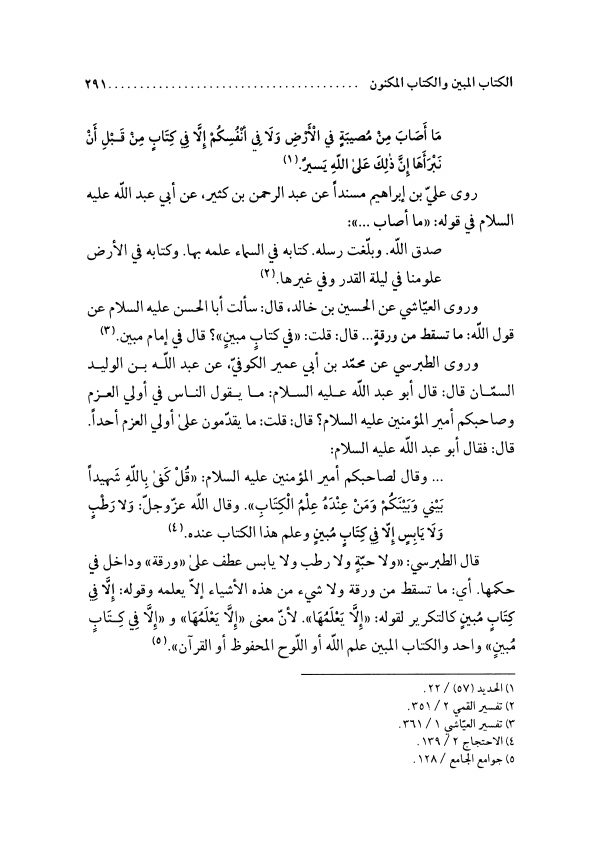 الكتاب المبين والكتاب المكنون ........................................ ٢٩١
مَا أَصَابَ مِنْ مُصِيبَةٍ فِي الْأَرْضِ وَلَا فِي أَنْفُسِكُمْ إِلَّا فِي كِتَابٍ مِنْ قَبْلِ أَنْ
نَبْرَأَهَا إِنَّ ذٰلِكَ عَلىٰ اللَّهِ يَسيرٌ.(١)
روى عليّ بن إبراهيم مسنداً عن عبد الرحمن بن كثير، عن أبي عبد اللّه عليه
السلام في قوله: «ما أصاب ...»:
صدق اللّه. وبلّغت رسله. كتابه في السماء علمه بها. وكتابه في الأرض
علومنا في ليلة القدر وفي غيرها.(٢)
وروى العيّاشي عن الحسين بن خالد، قال: سألت أبا الحسن عليه السلام عن
قول اللّه: ما تسقط من ورقةٍ... قال: قلت: «في كتابٍ مبينٍ»؟ قال في إمام مبين.(٣)
وروى الطبرسي عن محمّد بن أبي عمير الكوفيّ، عن عبد اللّه بن الوليد
السمّان قال: قال أبو عبد اللّه عليه السلام: ما يقول الناس في أولي العزم
وصاحبكم أمير المؤمنين عليه السلام؟ قال: قلت: ما يقدّمون علىٰ أولي العزم أحداً.
قال: فقال أبو عبد اللّه عليه السلام:
... وقال لصاحبكم أمير المؤمنين عليه السلام: «قُلْ كَفىٰ بِاللَّهِ شَهِيداً
بَيْنِي وَبَيْنَكُمْ وَمَنْ عِنْدَهُ عِلْمُ الْكِتَابِ». وقال اللّه عزّوجلّ: وَلا رَطْبٍ
وَلَا يَابِسٍ إِلَّا فِي كِتَابٍ مُبينٍ وعلم هذا الكتاب عنده.(٤)
قال الطبرسي: «ولا حبّةٍ ولا رطب ولا يابس عطف علىٰ «ورقة» وداخل في
حكمها. أي: ما تسقط من ورقة ولا شيء من هذه الأشياء إلاّ يعلمه وقوله: إلَّا فِي
كِتَابٍ مُبينٍ كالتكرير لقوله: «إِلَّا يَعْلَمُهَا». لأنّ معنى «إِلَّا يَعْلَمُهَا» و «إِلَّا فِي كِتَابٍ
مُبينٍ» واحد والكتاب المبين علم اللّه أو اللّوح المحفوظ أو القرآن».(٥)
١) الحديد (٥٧) / ٢٢.
٢) تفسير القمي ٢ / ٣٥١.
٣) تفسير العيّاشي ١ / ٣٦١.
٤) الاحتجاج ٢ / ١٣٩.
٥) جوامع الجامع / ١٢٨.